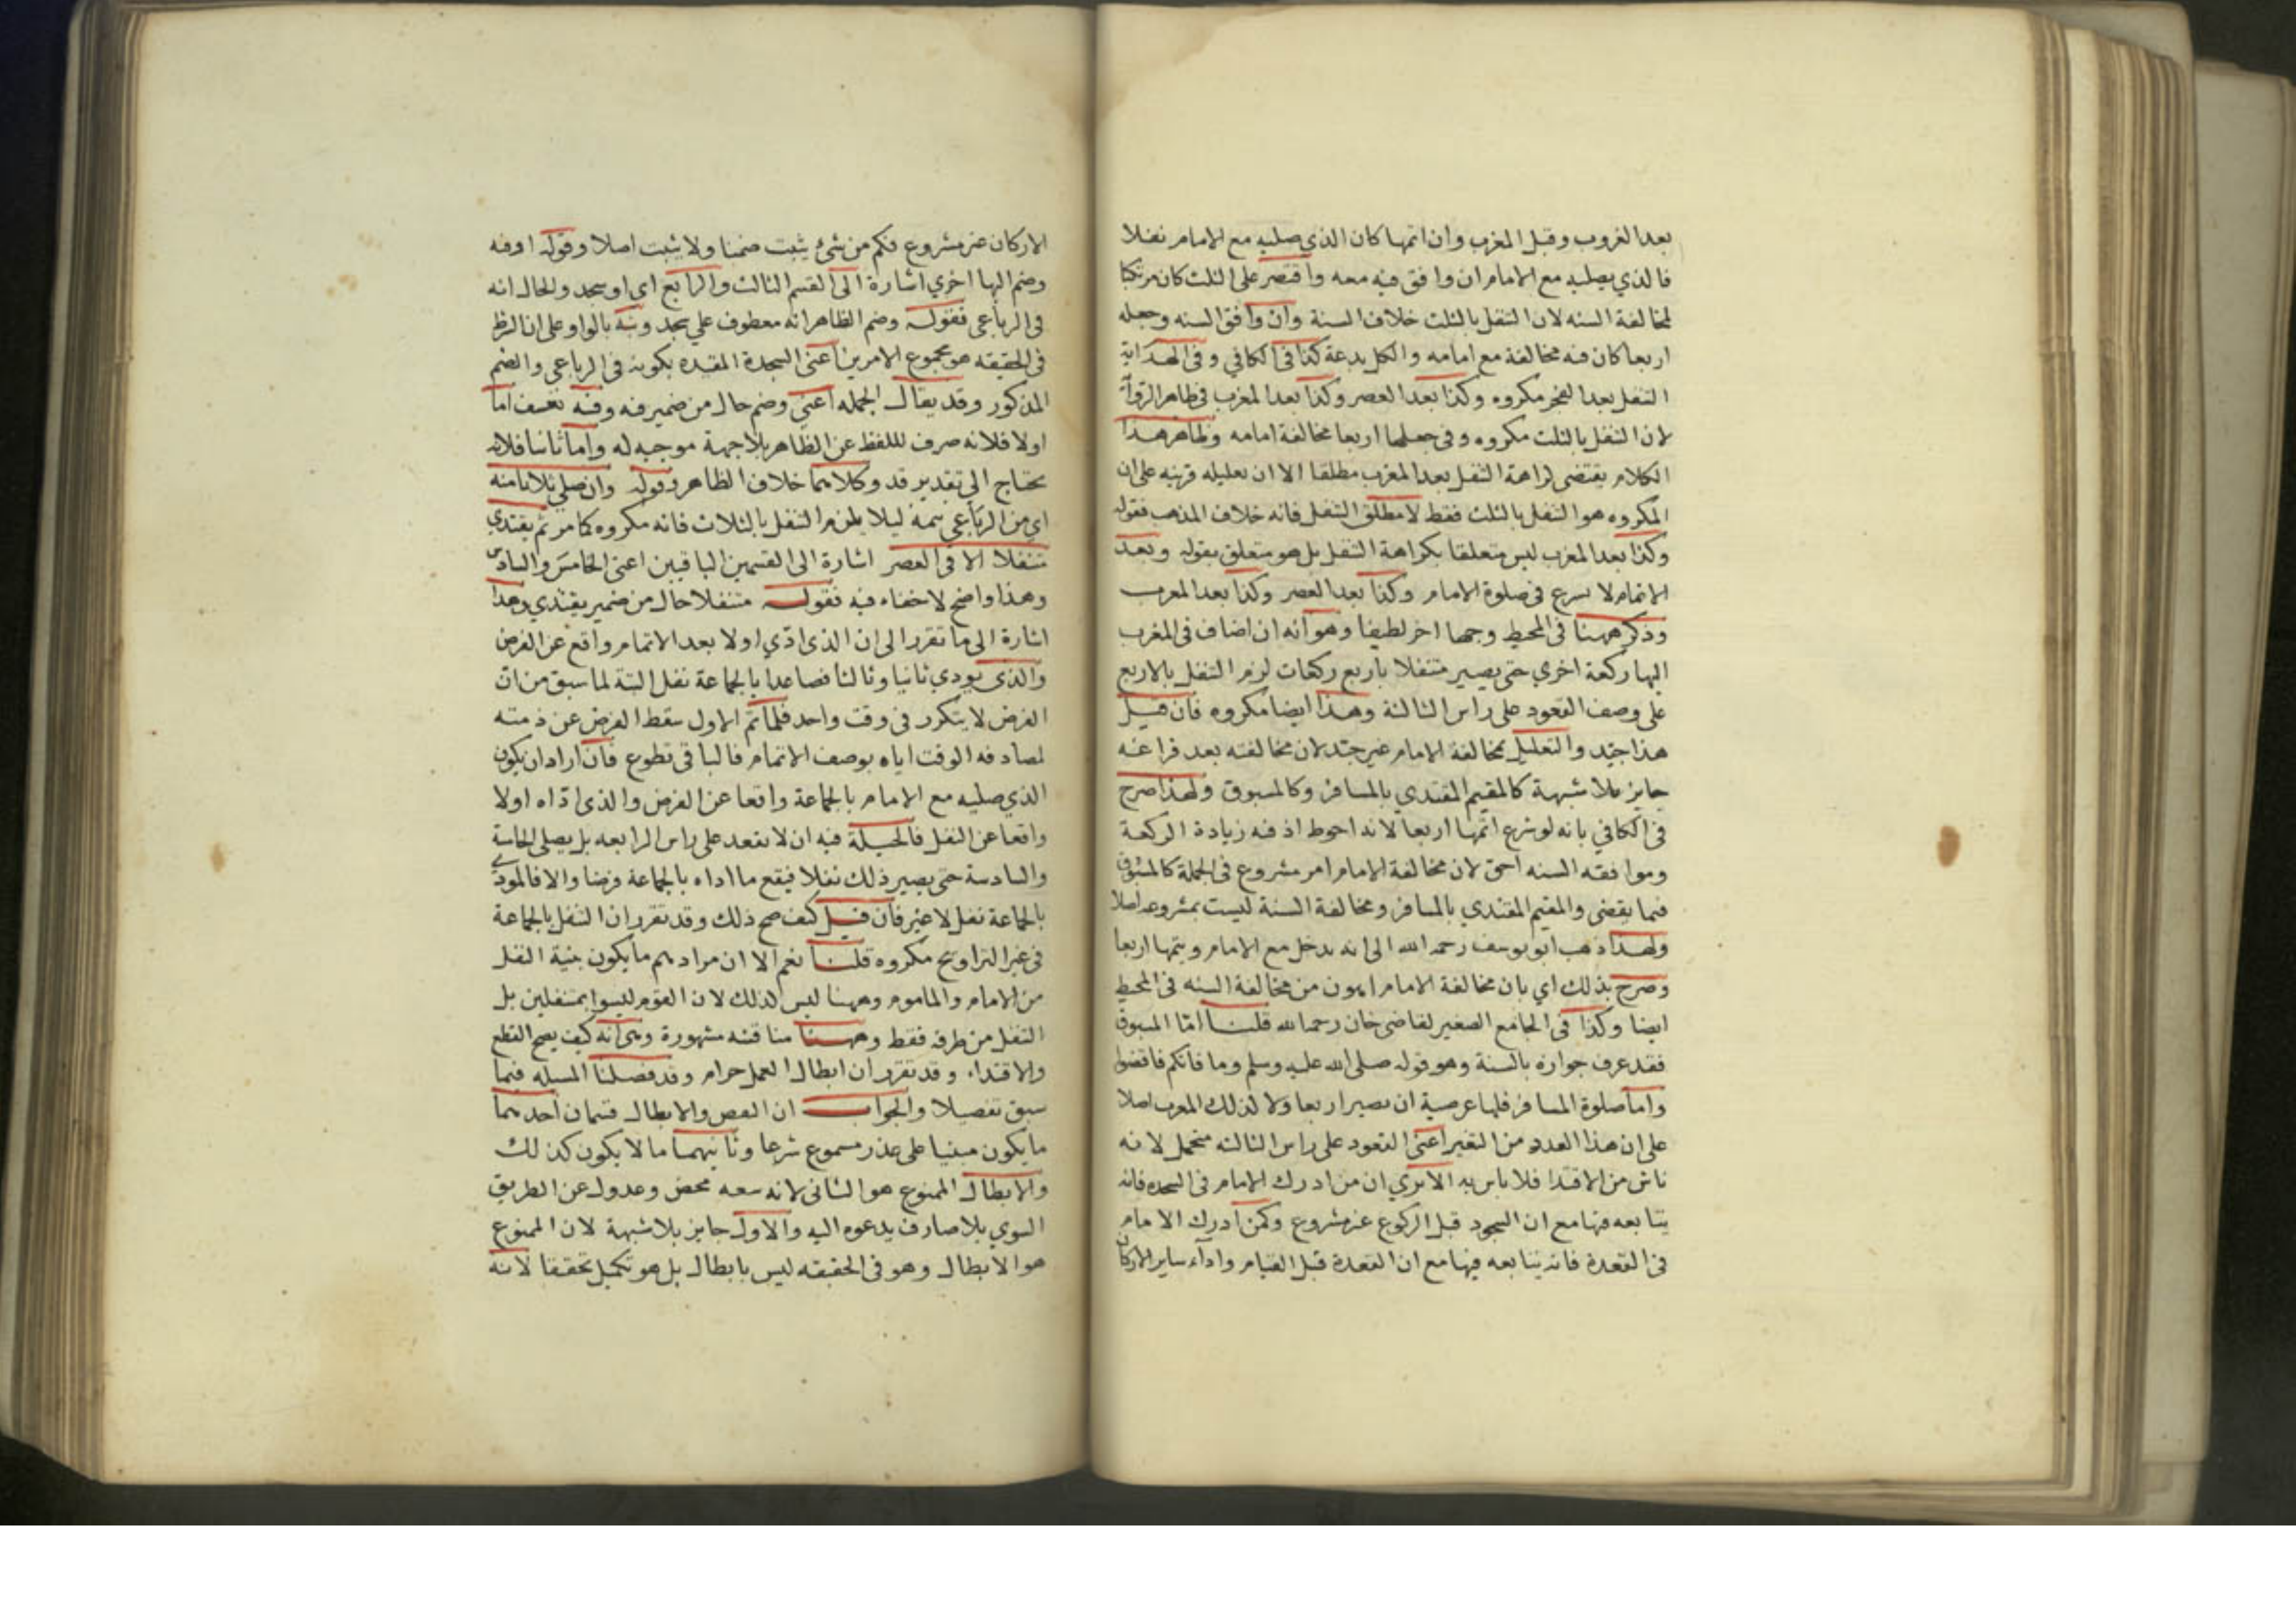 بعد الغروب وقبل المغرب وان اتمها كان الذي صليه مع الامام نفلا
فالذي يصليه مع الامام ان وافق فيه معه واقتصر على الثلث كان مرتكبا
لمخالفة السنه لان التنفل بالثلث خلاف السنة وان وافق السنه وجعله
اربعا كان فيه مخالفة مع امامه والكل بدعة كذا في الكافي وفي الهداية
التنفل بعد الفجر مكروه وكذا بعد العصر وكذا بعد المغرب في ظاهر الرواية
لان التنفل بالثلث مكروه وفي جعلها اربعا مخالفة امامه وظاهر هذا
الكلام يقتضي كراهة التنفل بعد المغرب مطلقا الا ان تعليله قرينه على ان
المكروه هو التنفل بالثلث فقط لا مطلق التنفل فانه خلاف المذهب فقوله
وكذا بعد المغرب ليس متعلقا بكراهة التنفل بل هو متعلق بقوله وبعد
الاتمام لا يشرع في صلوة الامام وكذا بعد العصر وكذا بعد المغرب
وذكر ههنا في المحيط وجها اخر لطيفا وهو انه ان اضاف في المغرب
اليها ركعة اخري حتى يصير متنفلا باربع ركعات لزم التنفل بالاربع
على وصف القعود على راس الثالثة وهذا ايضا مكروه فان قيل
هذا جيد والتعليل بمخالفة الامام غير جيد لان مخالفته بعد فراغه
جايز بلا شبهة كالمقيم المقتدي بالمسافر وكالمسبوق ولهذا صرح
في الكافي بانه لو شرع اتمها اربعا لانه احوط اذ فيه زيادة الركعة
وموافقه السنه احق لان مخالفة الامام امر مشروع في الجملة كالمسبوق
فيما يقضى والمقيم المقتدي بالمسافر ومخالفة السنة ليست بمشروعه اصلا
ولهذا ذهب ابو يوسف رحمه الله الى انه يدخل مع الامام ويتمها اربعا
وصرح بذلك اي بان مخالفة الامام اهون من مخالفة السنه في المحيط
ايضا وكذا في الجامع الصغير لقاضي خان رحمه الله قلنا امّا المسبوق
فقد عرف جوازه بالسنة وهو قوله صلى الله عليه وسلم وما فاتكم فاقضوا
واما صلوة المسافر فلها عرصية ان يصير اربعا ولا كذلك المغرب اصلا
على ان هذا العدد من التغير اعني القعود على راس الثالثه متحمل لانه
ناش من الاقتدا فلا باس به الا تري ان من ادرك الامام في السجده فانه
يتابعه فيها مع ان السجود قبل الركوع غير مشروع وكمن ادرك الامام
في القعدة فانه يتابعه فيها مع ان القعدة قبل القيام واداء ساير الاركان
الاركان غير مشروع فكم من شئ يثبت ضمنا ولا يثبت اصلا وقوله اوفيه
وضم اليها اخري اشارة الى القسم الثالث والرابع اي او سجد والحال انه
في الرباعي فقوله وضم الظاهر انه معطوف علي سجد ونبه بالواو على ان الشرط
في الحقيقه هو مجموع الامرين اعني السجدة المقيده بكونه في الرباعي والضم
المذكور وقد يقال الجمله اعني وضم حال من ضمير فيه وفيه تعسف اما
اولا فلانه صرف لللفظ عن الظاهر بلا جهة موجبه له واما ثانيا فلانه
يحتاج الي تقدير قد وكلاهما خلاف الظاهر وقوله وان صلي ثلاثا منه
اي من الرباعي يتمه ليلا يلزم التنفل بالثلاث فانه مكروه كما مر ثم يقتدي
متنفلا الا في العصر اشارة الى القسمين الباقيين اعني الخامس والسادس
وهذا واضح لا خفاء فيه فقوله متنفلا حال من ضمير يقتدي وهذا
اشارة الى ما تقرر الى ان الذي ادّي اولا بعد الاتمام واقع عن الفرض
والذي يودي ثانيا وثالثا فصاعدا بالجماعة نفل البتة لما سبق من ان
الفرض لا يتكرر في وقت واحد فلما تمّ الاول سقط الفرض عن ذمته
لمصادفه الوقت اياه بوصف الاتمام فالباقي تطوع فان اراد ان يكون
الذي صليه مع الامام بالجماعة واقعا عن الفرض والذي ادّاه اولا
واقعا عن النفل فالحيلة فيه ان لا يقعد على راس الرابعه بل يصلى الخامسة
والسادسة حتى يصير ذلك نفلا فيقع ما اداه بالجماعة فرضا والا فالمودي
بالجماعة نفل لا غير فان قيل كيف صح ذلك وقد تقرر ان التنفل بالجماعة
في غير التراويح مكروه قلنا نعم الا ان مرادهم ما يكون بنية النفل
من الامام والماموم وههنا ليس كذلك لان القوم ليسوا بمتنفلين بل
التنفل من طرفه فقط وههنا مناقشه مشهورة وهي انه كيف يصح القطع
والاقتداء وقد تقرر ان ابطال العمل حرام وقد فصلنا المسئله فيما
سبق تفصيلا والجواب ان النقص والابطال قسمان احدهما
ما يكون مبنيا على عذر مسموع شرعا وثانيهما ما لا يكون كذلك
والابطال الممنوع هو الثاني لانه سعه محض وعدول عن الطريق
السوي بلا صارف يدعوه اليه والاول جايز بلا شبهة لان الممنوع
هو الابطال وهو في الحقيقه ليس بابطال بل هو تكميل تحقيقا لانه